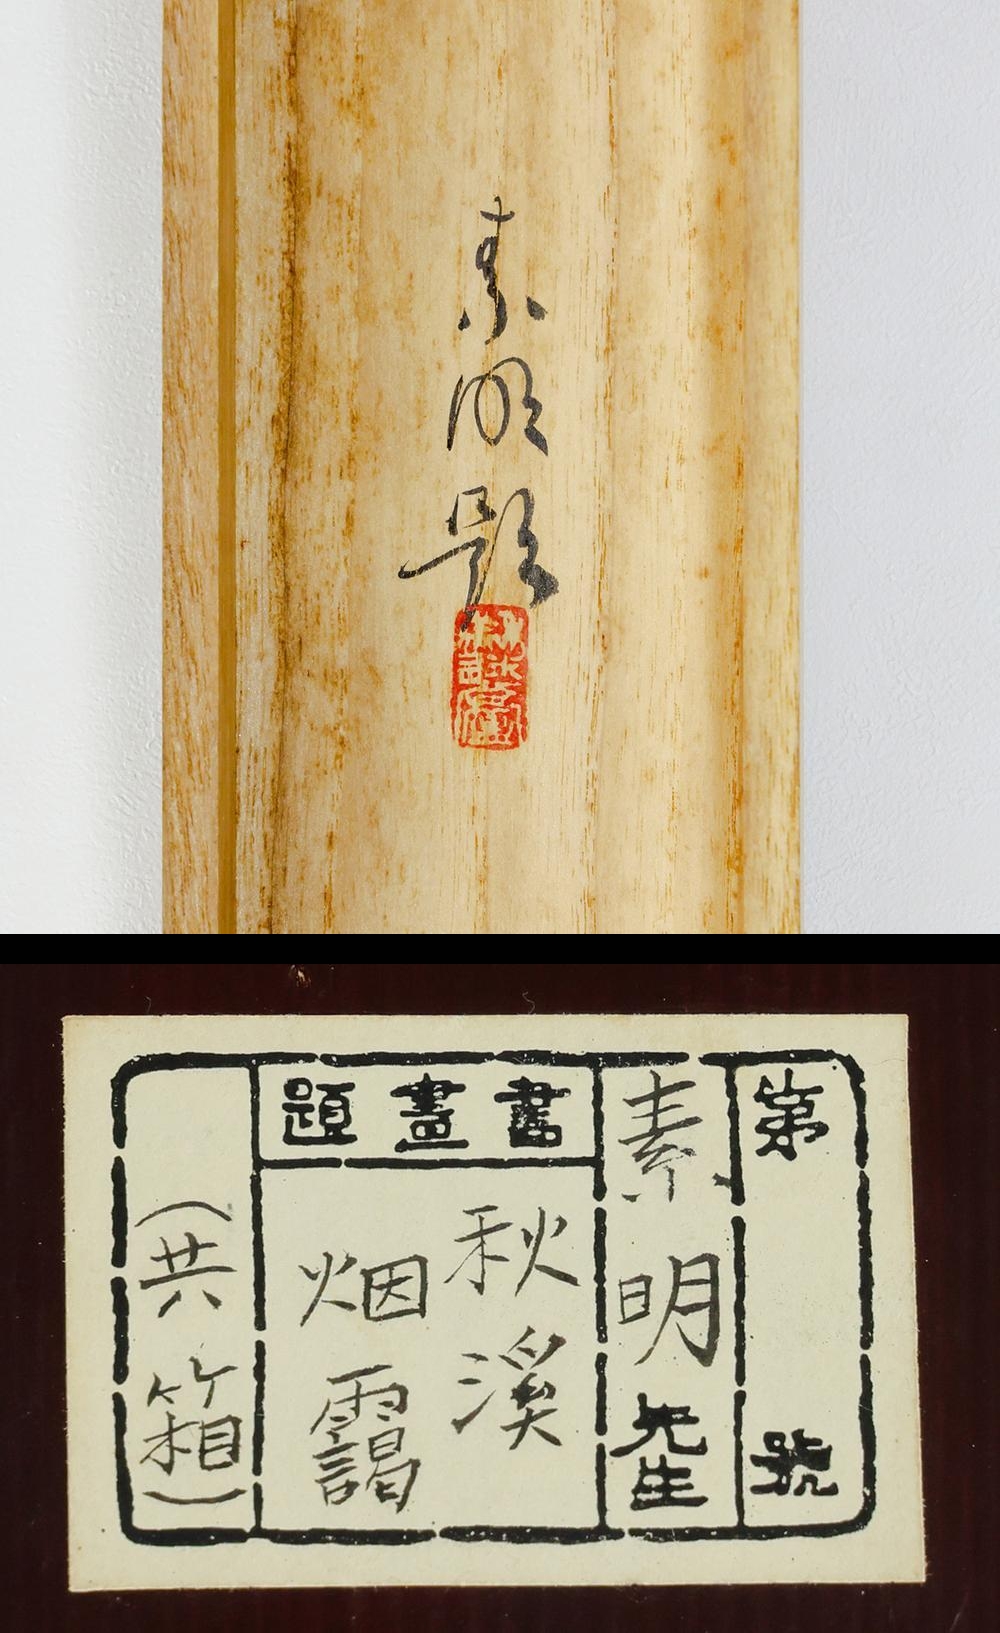 素明題
第 號
素明先生
書畫題
秋溪
烟靄
（共箱）